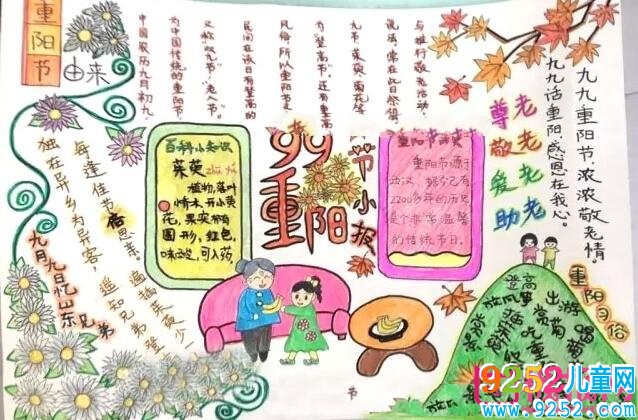 重阳节
由来
中国农历九月初九
为中国传统的重阳节
又称"双九节""老人节"
民间在该日有登高的
风俗,所以重阳节又
为"登高节"。还有重高
九节、茱萸、菊花等
说法,常在此日祭祖
与推行敬老活动。
九月九日忆山东兄弟
独在异乡为异客,
每逢佳节 思亲。
遥知兄弟登
遍插茱萸少一
百科小知识
茱萸 zhū yú
植物,落叶
木.开小黄
花,果实
圆形,红色,
味酸,可入药
99
重阳
节小报
重阳节
重阳节源于
西汉,据今已有
2200多年的历史
是个非常温馨
的传统节日。
尊老
敬老
爱老
助老
九九重阳节,浓浓敬老情。
九九话重阳,感恩在我心。
重阳习俗
登高
出游
赏菊
节
9252儿童网
www.9252.com